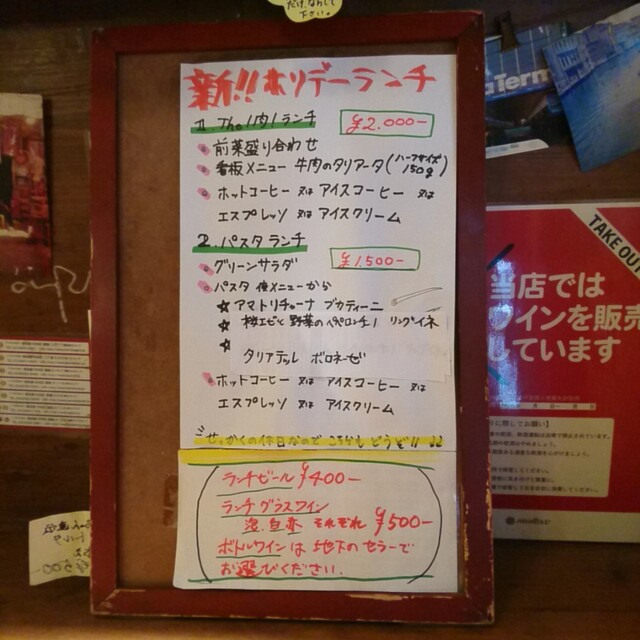 だけ、ならして
下さい。
新!!ホリデーランチ
1. The!肉!ランチ ¥2.000-
前菜盛り合わせ
看板メニュー 牛肉のタリアータ(ハーフサイズ 150g)
ホットコーヒー 又は アイスコーヒー 又は
エスプレッソ 又は アイスクリーム
2. パスタ ランチ ¥1.500-
グリーンサラダ
パスタ 後メニューから
☆ アマトリチャーナ ブカティーニ
☆ 桜エビと 野菜のペペロンチーノ リングイネ
☆
タリアテッレ ボロネーゼ
ホットコーヒー 又は アイスコーヒー 又は
エスプレッソ 又は アイスクリーム
せっかくの休日なので こちらも どうぞ!! ♪♪
ランチビール ¥400-
ランチ グラスワイン
泡 白 赤 それぞれ ¥500-
ボトルワイン は 地下の セラーで
お選びください.
Term
TAKE OU
当店では
ワインを販売
しています